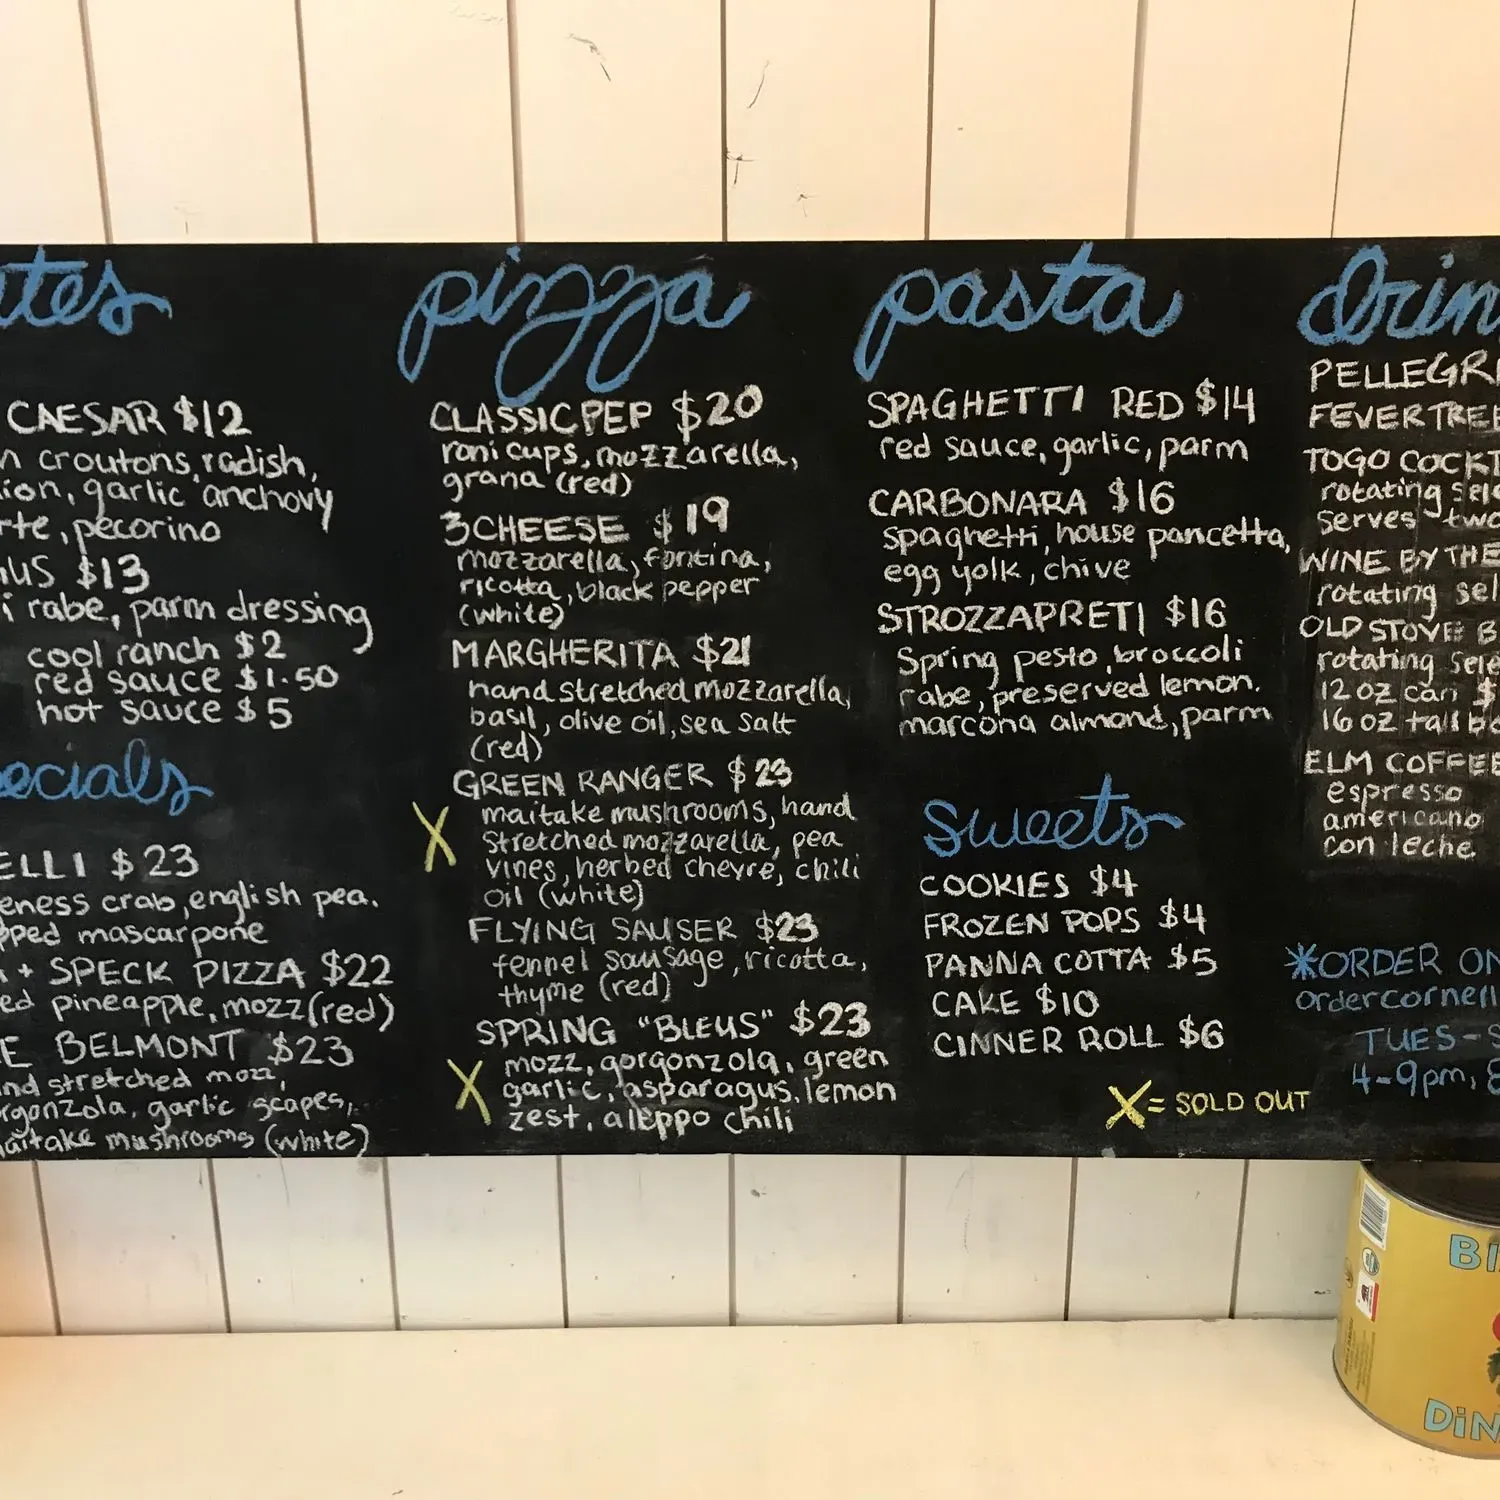 CAESAR $12
croutons, radish,
garlic anchovy
pecorino
$13
rabe, parm dressing
cool ranch $2
red sauce $1.50
hot sauce $5
$23
crab, english pea.
mascarpone
+ SPECK PIZZA $22
pineapple, mozz (red)
BELMONT $23
stretched mozz,
garlic scapes,
mushrooms (white)
pizza
CLASSIC PEP $20
roni cups, mozzarella,
grana (red)
3 CHEESE $19
mozzarella, fontina,
ricotta, black pepper
(white)
MARGHERITA $21
hand stretched mozzarella,
basil, olive oil, sea salt
(red)
GREEN RANGER $23
X
maitake mushrooms, hand
stretched mozzarella, pea
vines, herbed chevre, chili
oil (white)
FLYING SAUSER $23
fennel sausage, ricotta,
thyme (red)
SPRING "BLEUS" $23
X
mozz, gorgonzola, green
garlic, asparagus, lemon
zest, aleppo chili
pasta
SPAGHETTI RED $14
red sauce, garlic, parm
CARBONARA $16
spaghetti, house pancetta,
egg yolk, chive
STROZZAPRETI $16
Spring pesto, broccoli
rabe, preserved lemon.
marcona almond, parm
sweets
COOKIES $4
FROZEN POPS $4
PANNA COTTA $5
CAKE $10
CINNER ROLL $6
X = SOLD OUT
TOGO
rotating
serves
WINE BY THE
rotating
OLD STOVE
rotating
12 oz can
16 oz tall
ELM COFFEE
espresso
americano
con leche
*ORDER
TUES-
4-9pm,